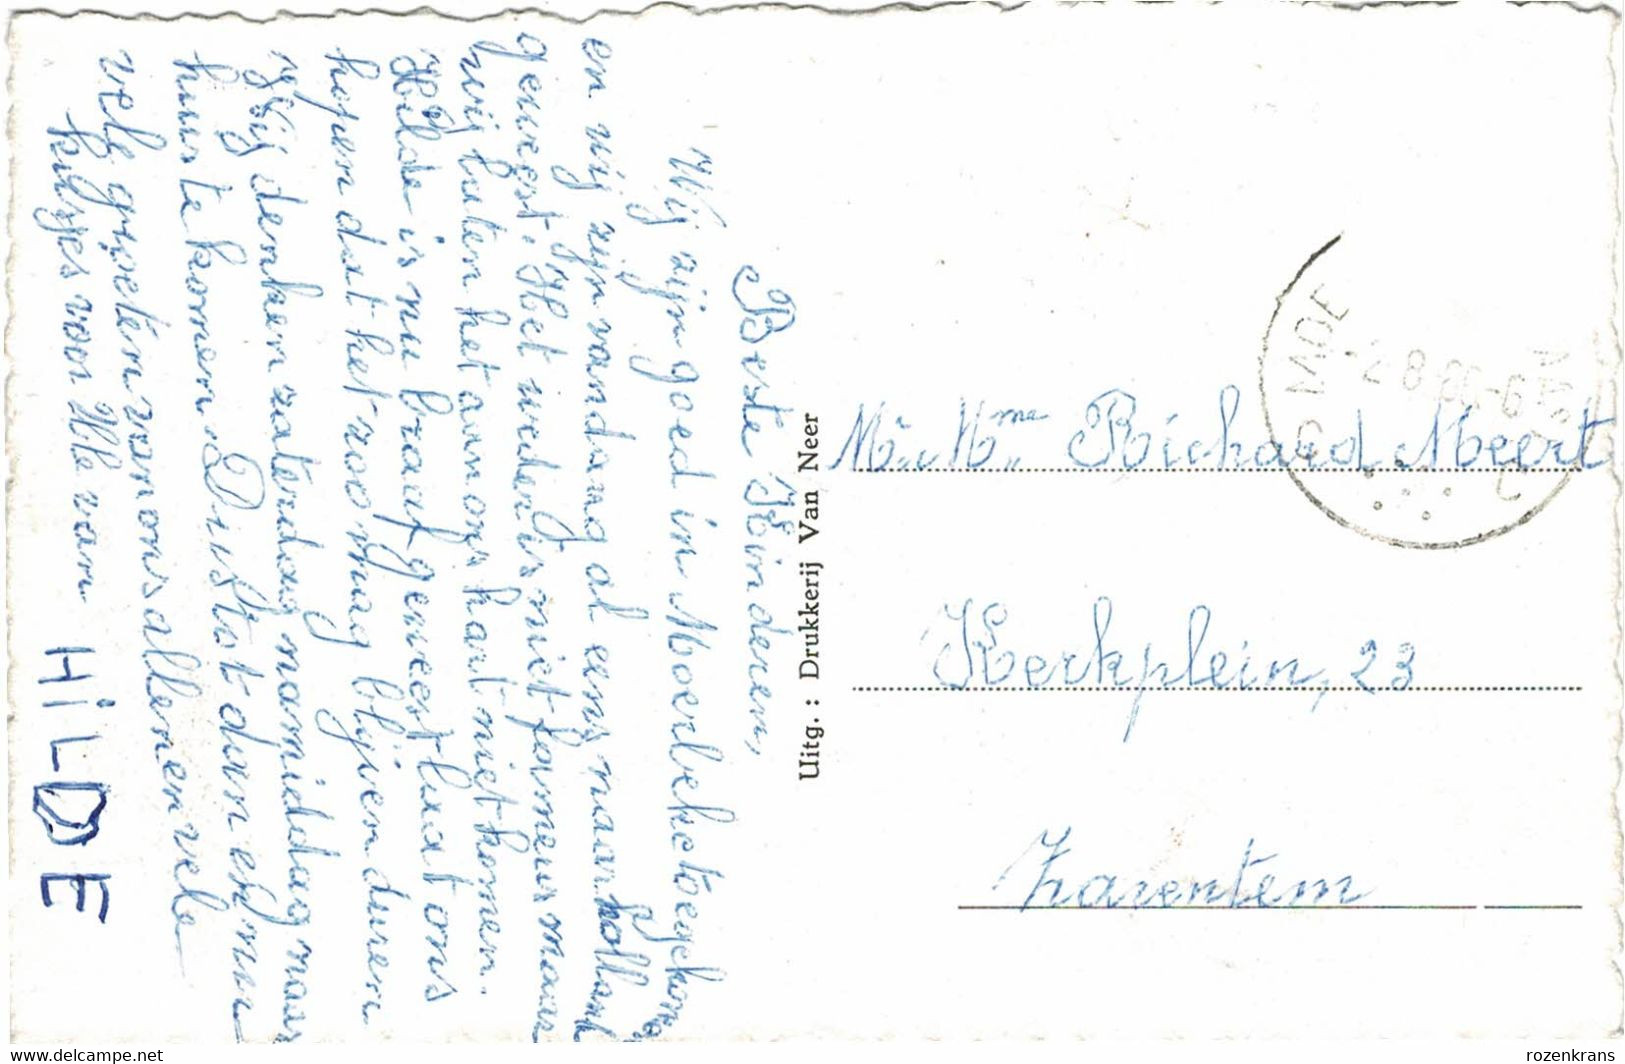 Beste Kinderen,
Wij zijn goed in Moerbeke toegekomen
en wij zijn vandaag al eens naar Holland
geweest. Het weder is niet fameus maar
wij laten het aan ons hart niet komen.
Hilde is nu braaf geweest laat ons
hopen dat het zoo mag blijven duren
Wij denken zaterdag namiddag naar
huis te komen. Dus tot dan en nu
vele groeten van ons allen en vele
kusjes voor Ulle van HiLDE
Uitg. : Drukkerij Van Neer
Mr. Mme Richard Meert
Kerkplein, 23
Zaventem
delcampe.net
rozenkrans